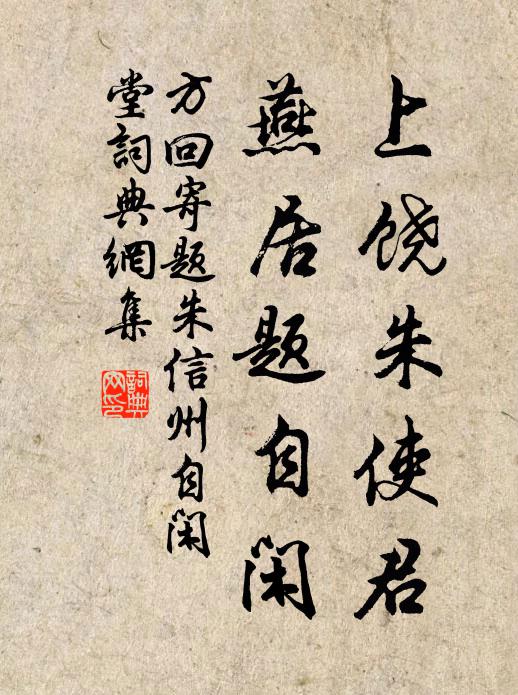 上饶朱使君
燕居题自闲
方回寄题朱信州自闲
堂詞典網集
詞典
网印